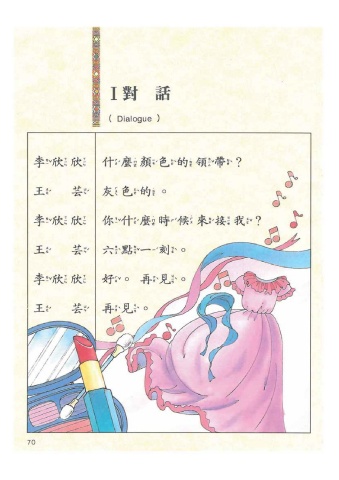 I 對 話
( Dialogue )
李欣欣 什麼顏色的領帶？
王芸 灰色的。
李欣欣 你什麼時候來接我？
王芸 六點一刻。
李欣欣 好。再見。
王芸 再見。
70